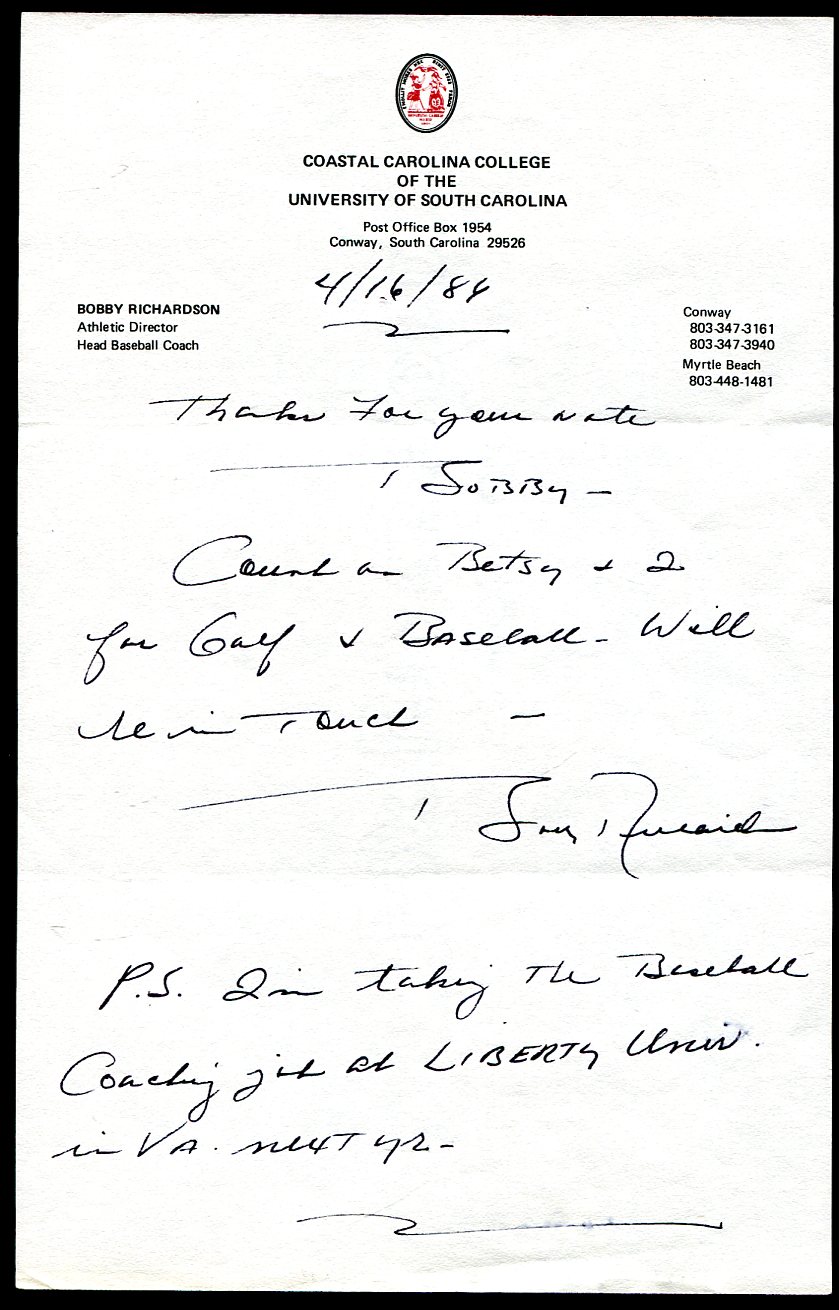 COASTAL CAROLINA COLLEGE
OF THE
UNIVERSITY OF SOUTH CAROLINA
Post Office Box 1954
Conway, South Carolina 29526
4/16/86
BOBBY RICHARDSON
Athletic Director
Head Baseball Coach
Conway
803-347-3161
803-347-3940
Myrtle Beach
803-448-1481
Thanks For your note
BOBBy -
Count on Betsy & I
for Golf & Baseball - Will
be in Touch -
P.S. I'm taking The Baseball
Coaching job at LIBERTY Univ.
in VA. next yr -